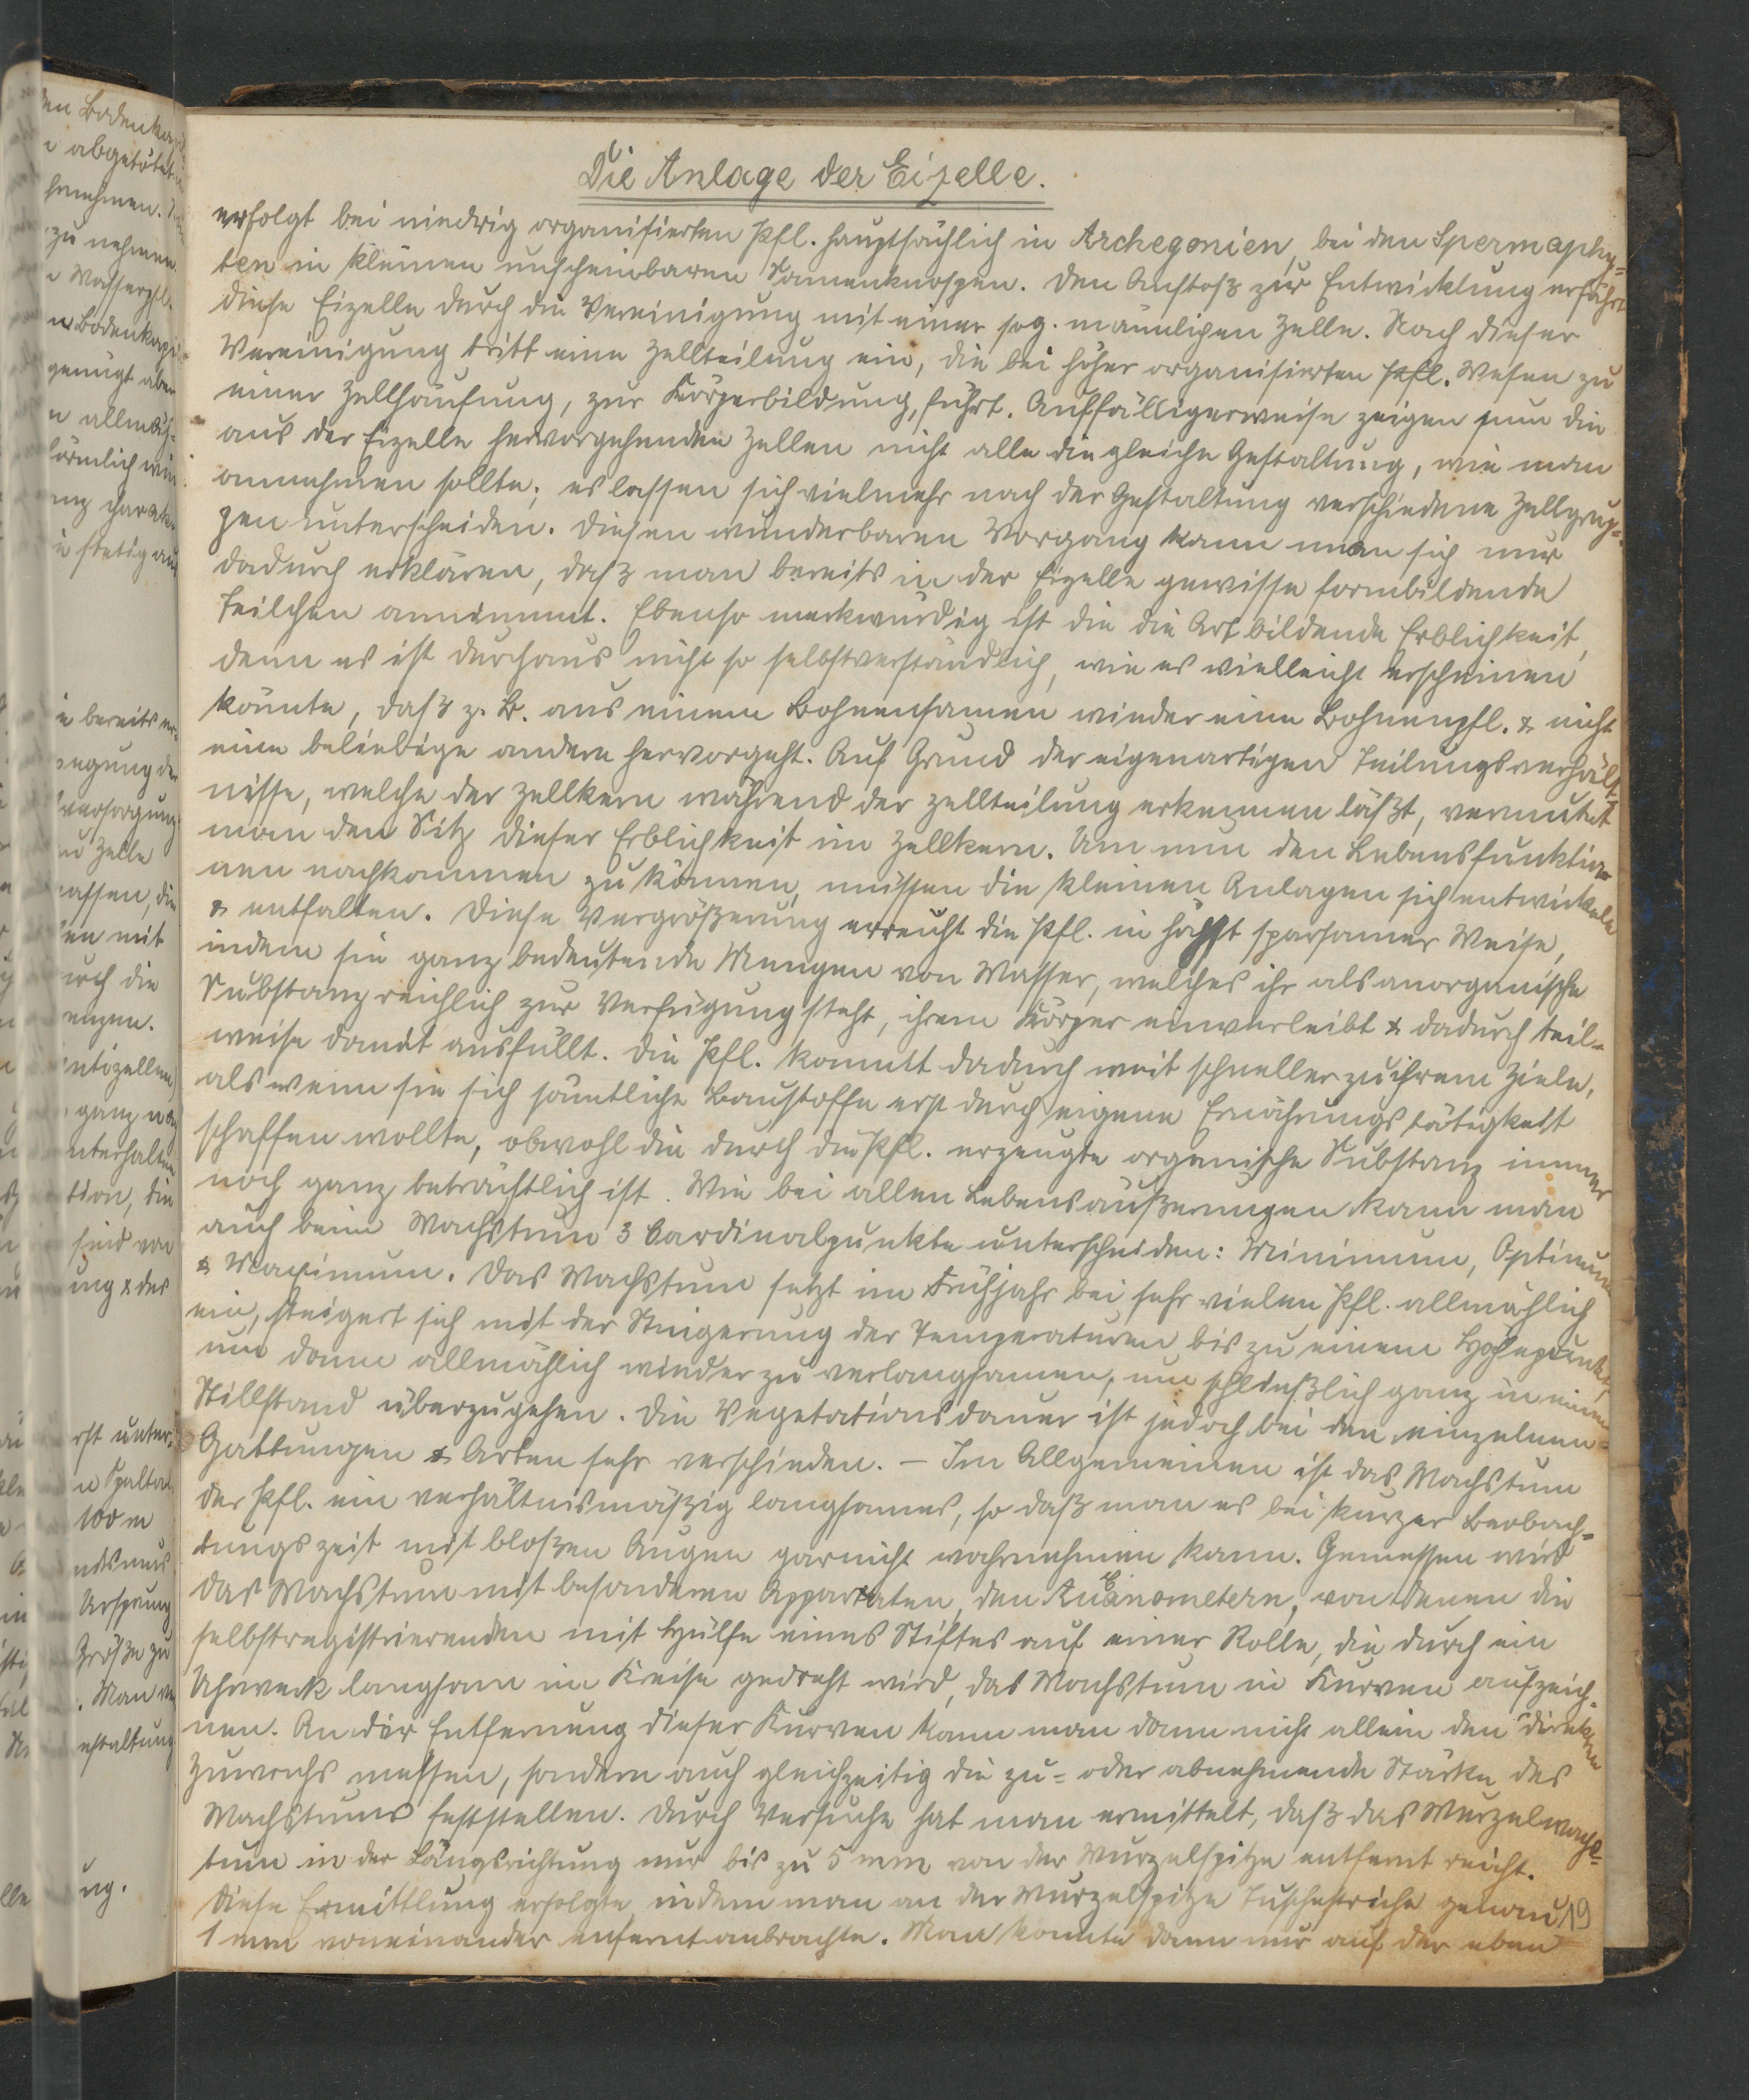 Die Anlage der Eizelle.
erfolgt bei niedrig organisierten Pfl. hauptsächlich in Archegonien, bei den Spermaphy=
ten in kleinen unscheinbaren Samenknospen. Den Anstoß zur Entwicklung erfährt
diese Eizelle durch die Vereinigung mit einer sog. männlichen Zelle. Nach dieser
Vereinigung tritt eine Zellteilung ein, die bei höher organisierten Pfl. Wesen zu
einer Zellhäufung, zur Körperbildung, führt. Auffälligerweise zeigen nun die
aus der Eizelle hervorgehenden Zellen nicht alle die gleiche Gestaltung, wie man
annehmen sollte; es lassen sich vielmehr nach der Gestaltung verschiedene Zellgrup=
pen unterscheiden. Diesen wunderbaren Vorgang kann man sich nur
dadurch erklären, daß man bereits in der Eizelle gewisse formbildende
Teilchen annimmt. Ebenso merkwürdig ist die die Art bildende Erblichkeit,
denn es ist durchaus nicht so selbstverständlich, wie es vielleicht erscheinen
könnte, daß z. B. aus einem Bohnensamen wieder eine Bohnenpfl. & nicht
eine beliebige andere hervorgeht. Auf Grund der eigenartigen Teilungsverhält=
nisse, welche der Zellkern während der Zellteilung erkennen läßt, vermutet
man den Sitz dieser Erblichkeit im Zellkern. Um nun den Lebensfunktio=
nen nachkommen zu können, müssen die kleinen Anlagen sich entwickeln
& entfalten. Diese Vergrößerung erreicht die Pfl. in höchst sparsamer Weise,
indem sie ganz bedeutende Mengen von Wasser, welches ihr als anorganische
Substanz reichlich zur Verfügung steht, ihrem Körper einverleibt & dadurch teil=
weise damit ausfüllt. Die Pfl. kommt dadurch weit schneller zu ihrem Ziele,
als wenn sie sich sämtliche Baustoffe erst durch eigene Ernährungstätigkeit
schaffen wollte, obwohl die durch die Pfl. erzeugte organische Substanz immer
noch ganz beträchtlich ist. Wie bei allen Lebensäußerungen kann man
auch beim Wachstum 3 Cardinalpunkte unterscheiden: Minimum, Optimum
& Maximum. Das Wachstum setzt im Frühjahr bei sehr vielen Pfl. allmählich
ein, steigert sich mit der Steigerung der Temperaturen bis zu einem Höhepunkt,
um dann allmählich wieder zu verlangsamen, um schließlich ganz in einen
Stillstand überzugehen. Die Vegetationsdauer ist jedoch bei den einzelnen
Gattungen & Arten sehr verschieden. – Im Allgemeinen ist das Wachstum
der Pfl. ein verhältnismäßig langsames, so daß man es bei kurzer Beobach=
tungszeit mit bloßen Augen garnicht wahrnehmen kann. Gemessen wird
das Wachstum mit besonderen Apparaten, den Auxanometern, von denen die
selbstregistrierenden mit Hülfe eines Stiftes auf einer Rolle, die durch ein
Uhrwerk langsam im Kreise gedreht wird, das Wachstum in Kurven aufzeich=
nen. An der Entfernung dieser Kurven kann man dann nicht allein den direkten
Zuwachs messen, sondern auch gleichzeitig die zu= oder abnehmende Stärke des
Wachstums feststellen. Durch Versuche hat man ermittelt, daß das Wurzelwachs=
tum in der Längsrichtung nur bis zu 5 mm von der Wurzelspitze entfernt reicht.
Diese Ermittlung erfolgte indem man an der Wurzelspitze Tuschestriche genau
1 mm voneinander entfernt anbrachte. Man konnte dann nur auf der eben
19